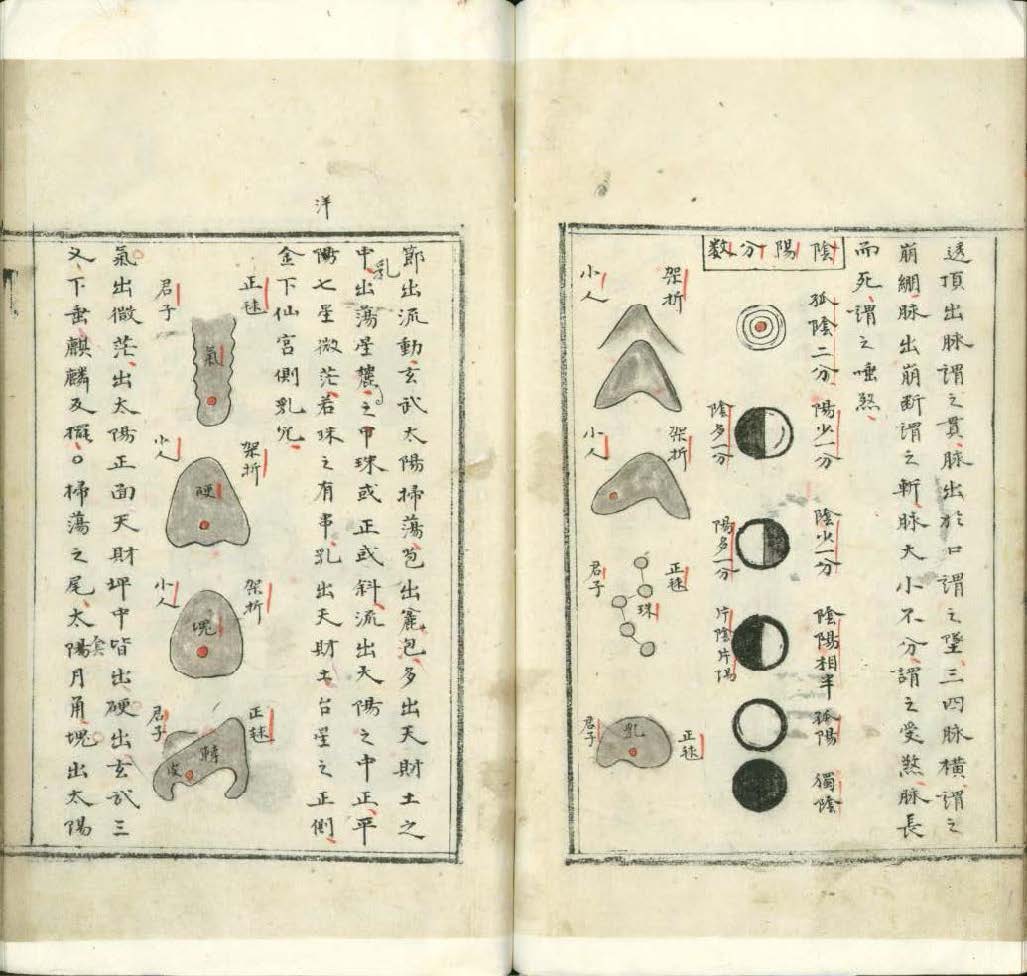 透頂出脉謂之貫脉出於口謂之墜三四脉橫謂之
崩綳脉出崩断謂之斬脉大小不分謂之受煞脉長
而死謂之唾煞
陰陽分数
孤陰二分
陽少一分
陰多一分
陰少一分
陽多一分
陰陽相半
片陰片陽
孤陽
獨陰
架折
小人
架折
小人
正毬
君子
珠
正毬
君子
乳
洋
節出流動玄武太陽掃蕩皰出麄包多出天財土之
中乳出蕩星麓之中珠或正或斜流出天陽之中正平
陽七星微茫若珠之有串乳出天財土台星之正側
金下仙宮側乳穴
正毬
君子
氣
架折
小人
硬
架折
小人
塊
正毬
君子
轉
皮
氣出微茫出太陽正面天財坪中皆出硬出玄武三
义下垂麒麟及擺〇掃蕩之尾太陽月角塊出太陽